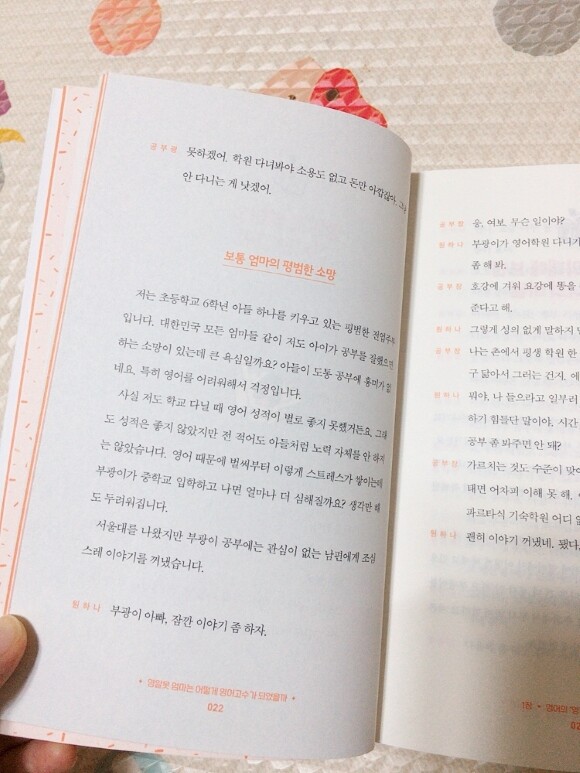 공부왕 못하겠어. 학원 다녀봐야 소용도 없고 돈만 아깝잖아.
안 다니는 게 낫겠어.
보통 엄마의 평범한 소망
저는 초등학교 6학년 아들 하나를 키우고 있는 평범한 전업주부
입니다. 대한민국 모든 엄마들 같이 저도 아이가 공부를 잘했으면
하는 소망이 있는데 큰 욕심일까요? 아들이 도통 공부에 흥미가 없
네요. 특히 영어를 어려워해서 걱정입니다.
사실 저도 학교 다닐 때 영어 성적이 별로 좋지 못했거든요. 그래
도 성적은 좋지 않았지만 전 적어도 아들처럼 노력 자체를 안 하지
는 않았습니다. 영어 때문에 벌써부터 이렇게 스트레스가 쌓이는데
부광이 중학교 입학하고 나면 얼마나 더 심해질까요? 생각만 해
도 두려워집니다.
서울대를 나왔지만 부광이 공부에는 관심이 없는 남편에게 조심
스레 이야기를 꺼냈습니다.
원하나 부광이 아빠, 잠깐 이야기 좀 하자.
영알못 엄마는 어떻게 영어고수가 되었을까
022
공부왕 응, 여보. 무슨 일이야?
원하나 부광이가 영어학원 다니기
좀 해 봐.
공부왕 호강에 겨워 요강에 똥을
준다고 해.
원하나 그렇게 성의 없게 말하지
공부왕 나는 촌에서 평생 학원 한
구 닮아서 그러는 건지,
원하나 뭐야, 나 들으라고 일부러
하기 힘들단 말이야. 시간
공부 좀 봐주면 안 돼?
공부왕 가르치는 것도 수준이 맞아
태면 어차피 이해 못 해.
파르타식 기숙학원 어디 없
원하나 괜히 이야기 꺼냈네. 됐다.
1장 • 영어의